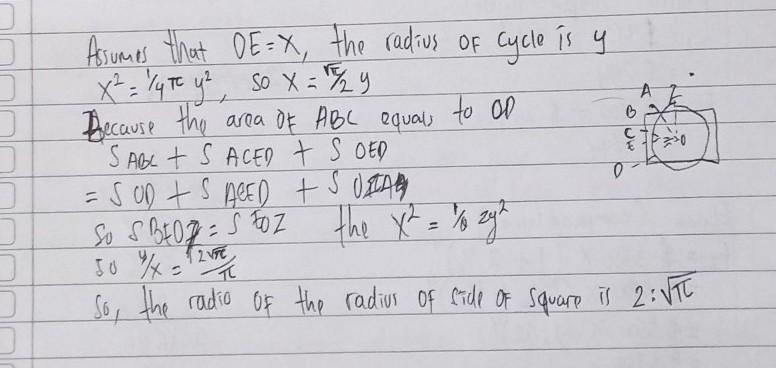 Assumes that OE=X, the radius of cycle is y
X² = 1/4 π y², so X = √π/2 y
Because the area of ABC equals to OD
S ABC + S ACED + S OED
= S OD + S ACED + S
So S BEOZ = S EOZ the X² = y²
So y/x = 2√π/π
So, the radio of the radius of side of square is 2:√π
A Z
B E
C
E O
D